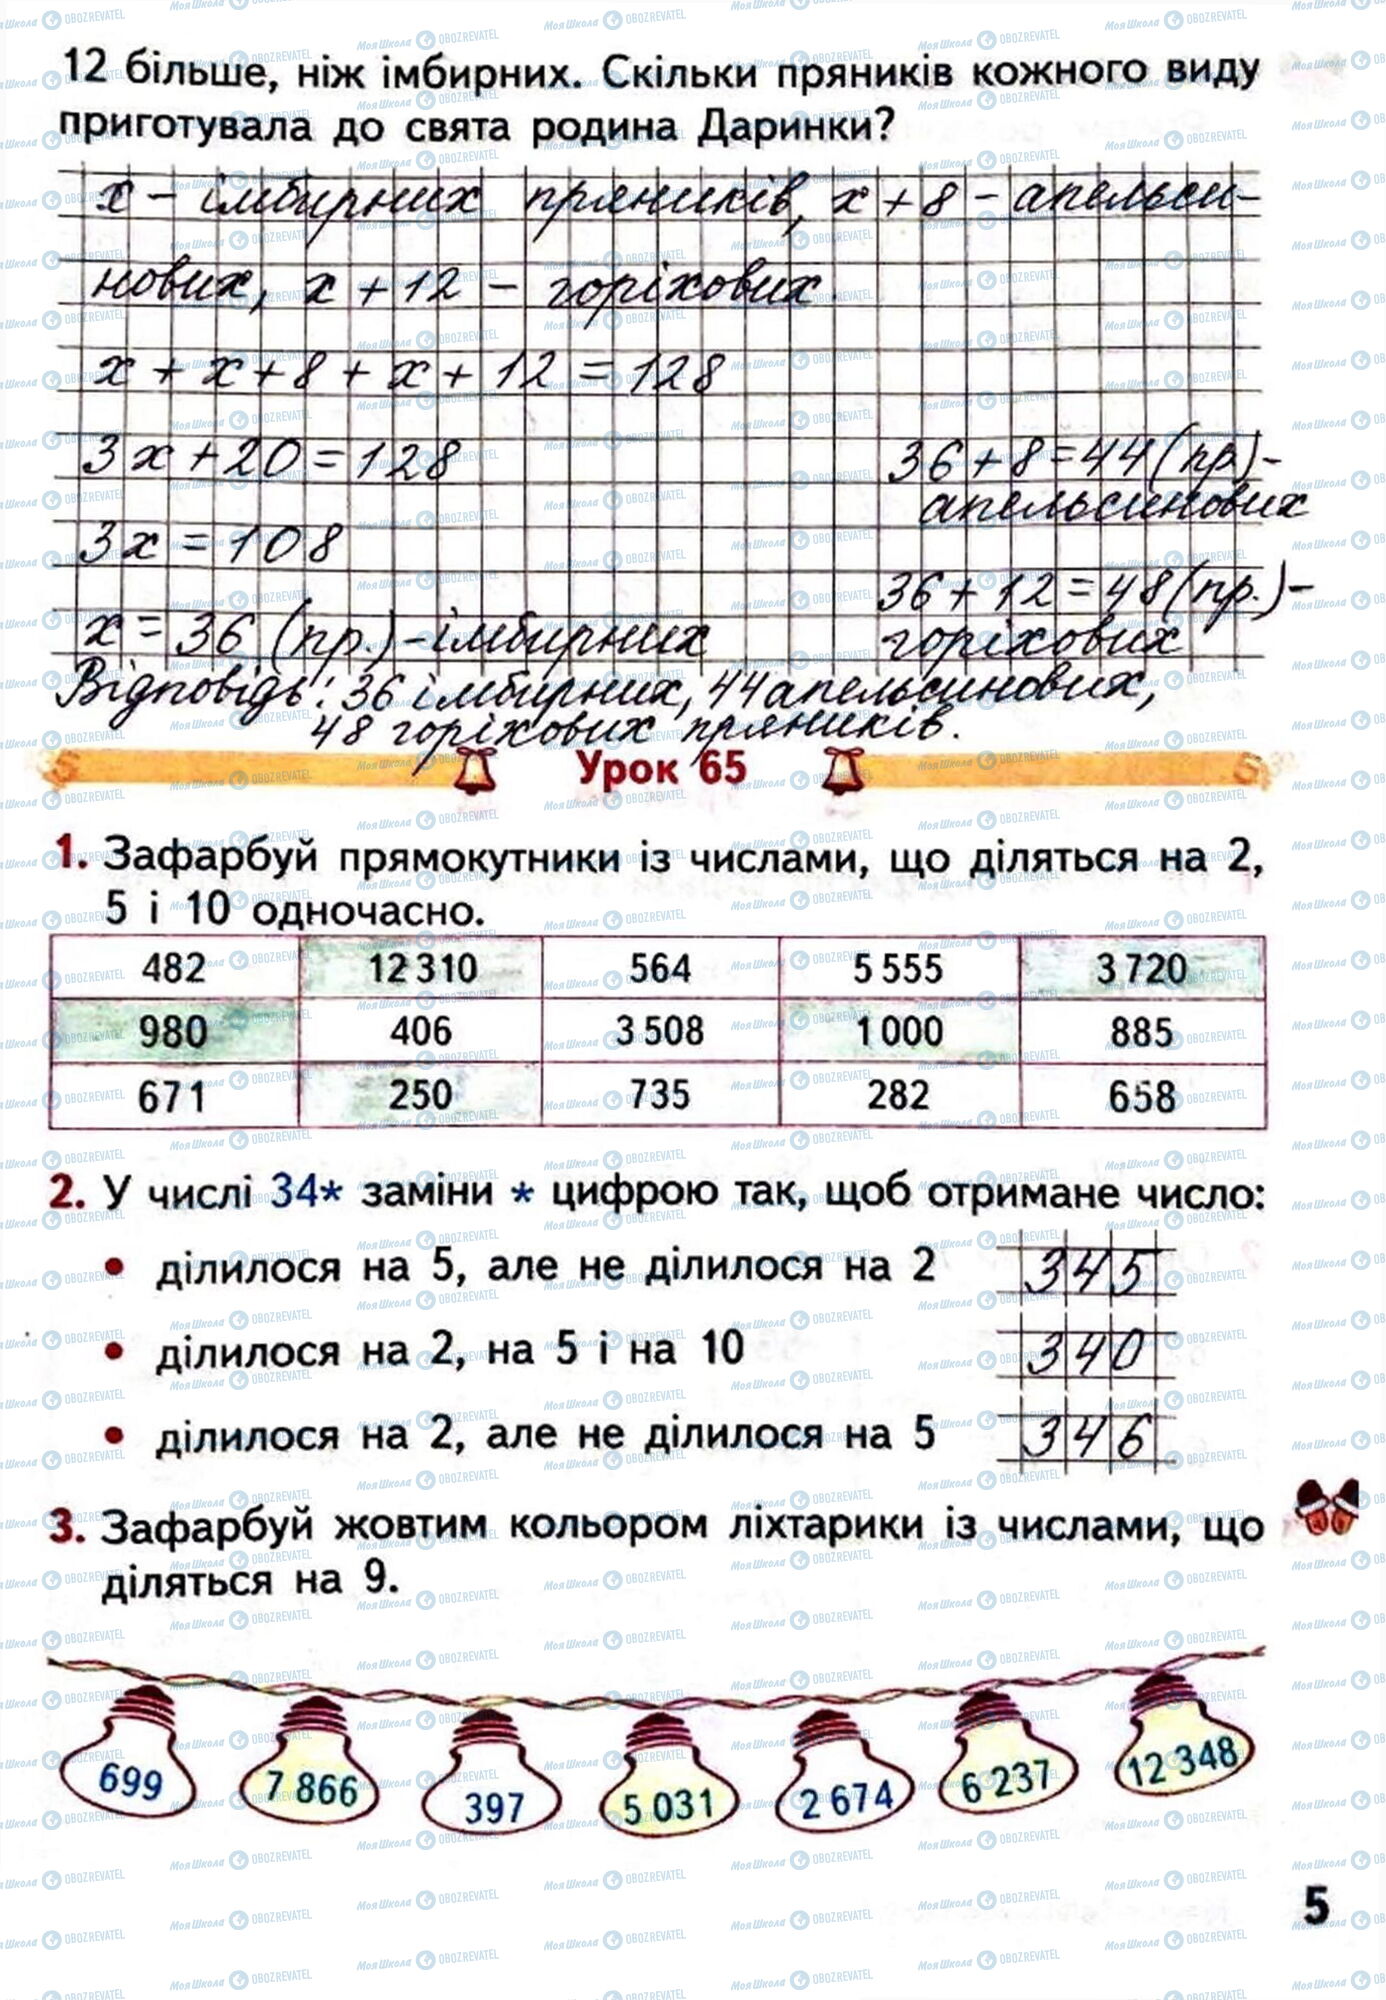 12 більше, ніж імбирних. Скільки пряників кожного виду
приготувала до свята родина Даринки?
х – імбирних пряників, х + 8 – апельси-
нових, х + 12 – горіхових
х + х + 8 + х + 12 = 128
3х + 20 = 128
36 + 8 = 44 (пр) –
апельсинових
3х = 108
36 + 12 = 48 (пр.) –
х = 36 (пр.) – імбирних
горіхових
Відповідь: 36 імбирних, 44 апельсинових,
48 горіхових пряників.
Урок 65
1. Зафарбуй прямокутники із числами, що діляться на 2,
5 і 10 одночасно.
482 12 310 564 5 555 3 720
980 406 3 508 1 000 885
671 250 735 282 658
2. У числі 34* заміни * цифрою так, щоб отримане число:
• ділилося на 5, але не ділилося на 2 345
• ділилося на 2, на 5 і на 10 340
• ділилося на 2, але не ділилося на 5 346
3. Зафарбуй жовтим кольором ліхтарики із числами, що
діляться на 9.
699 7 866 397 5 031 2 674 6 237 12 348
5
МояШкола OBOZREVATEL